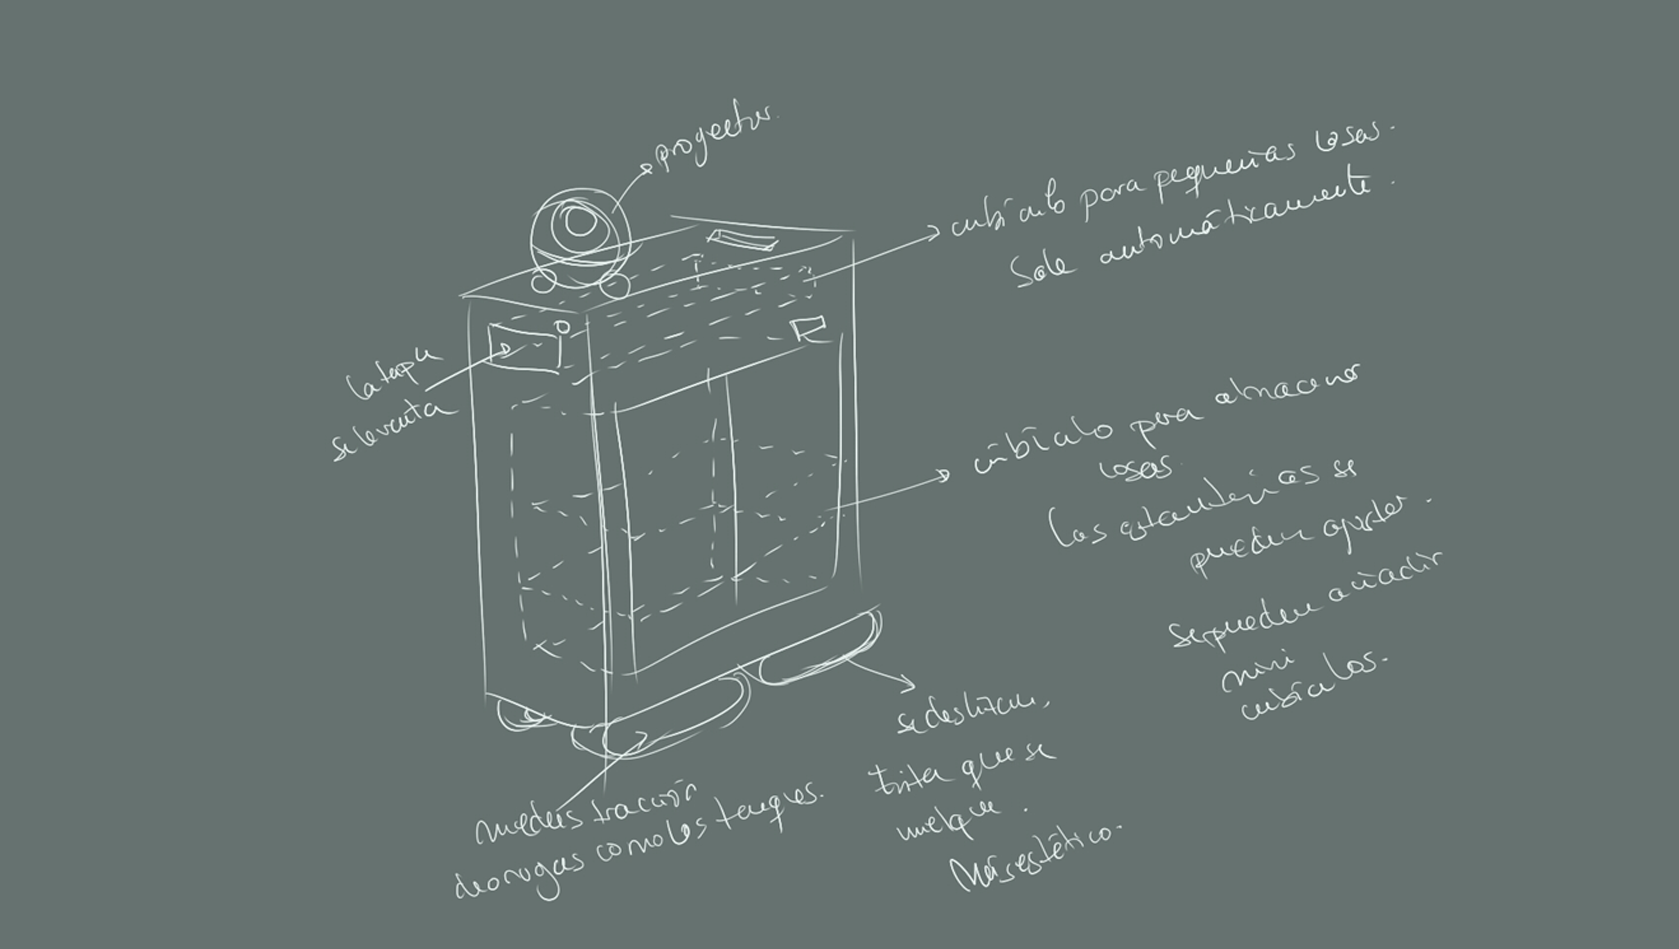 proyector.
cubículo para pequeñas cosas.
Sale automáticamente.
la tapa
se levanta
cubículo para almacenar
cosas
Las estanterías se
pueden ajustar.
Se pueden añadir
mini
cubículos.
se deslizan,
evita que se
Más estético.
ruedas tracción
de orugas como los tanques.